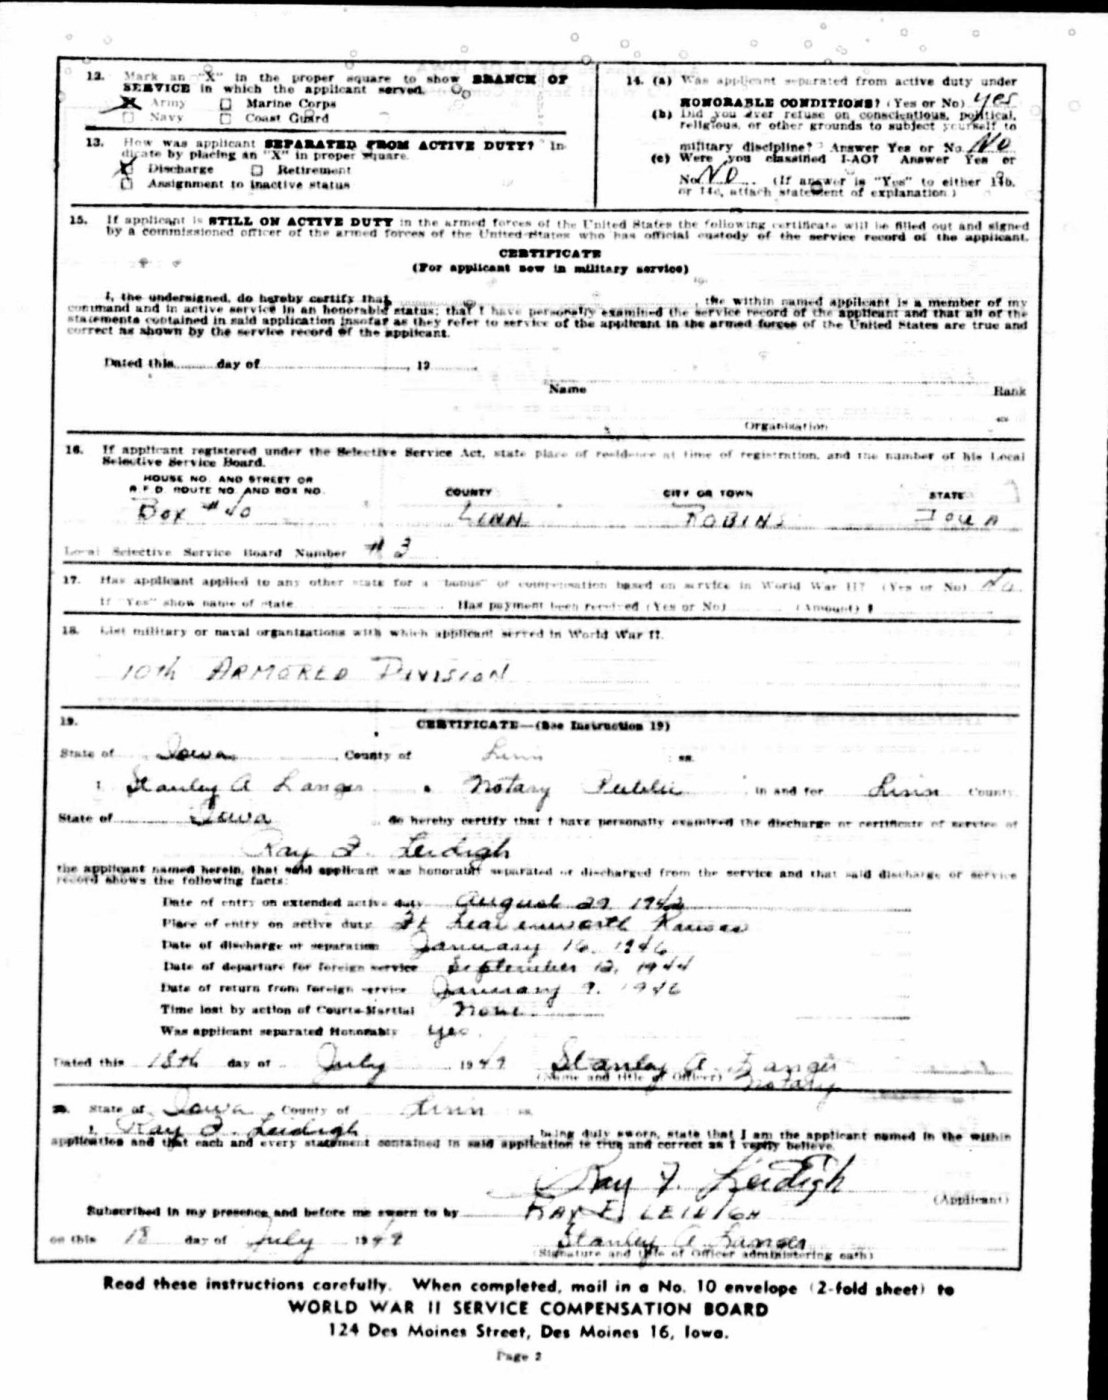 12. Mark an "X" in the proper square to show BRANCH OF
SERVICE in which the applicant served.
X Army ☐ Marine Corps
☐ Navy ☐ Coast Guard
13. How was applicant SEPARATED FROM ACTIVE DUTY? In-
dicate by placing an "X" in proper square.
X Discharge ☐ Retirement
☐ Assignment to inactive status
14. (a) Was applicant separated from active duty under
HONORABLE CONDITIONS? (Yes or No) yes
(b) Did you ever refuse on conscientious, political,
religious, or other grounds to subject yourself to
military discipline? Answer Yes or No. No
(c) Were you classified I-AO? Answer Yes or
No NO (If answer is "Yes" to either 14b.
or 14c, attach statement of explanation.)
15. If applicant is STILL ON ACTIVE DUTY in the armed forces of the United States the following certificate will be filled out and signed
by a commissioned officer of the armed forces of the United States who has official custody of the service record of the applicant.
CERTIFICATE
(For applicant now in military service)
I, the undersigned, do hereby certify that , the within named applicant is a member of my
command and in active service in an honorable status; that I have personally examined the service record of the applicant and that all of the
statements contained in said application insofar as they refer to service of the applicant in the armed forces of the United States are true and
correct as shown by the service record of the applicant.
Dated this day of , 19
Name Rank
Organization
16. If applicant registered under the Selective Service Act, state place of residence at time of registration, and the number of his Local
Selective Service Board.
HOUSE NO. AND STREET OR
R.F.D. ROUTE NO. AND BOX NO. COUNTY CITY OR TOWN STATE
Box #40 LINN ROBINS IOWA
Local Selective Service Board Number #3
17. Has applicant applied to any other state for a "bonus" or compensation based on service in World War II? (Yes or No) No
If "Yes" show name of state Has payment been received (Yes or No) (Amount) $
18. List military or naval organizations with which applicant served in World War II.
10th ARMORED DIVISION
19. CERTIFICATE—(See Instruction 19)
State of Iowa County of Linn ss.
I, Stanley A Langer a Notary Public in and for Linn County
State of Iowa do hereby certify that I have personally examined the discharge or certificate of service of
Ray F. Leidigh
the applicant named herein, that said applicant was honorably separated or discharged from the service and that said discharge or service
record shows the following facts:
Date of entry on extended active duty August 29, 1942
Place of entry on active duty Ft Leavenworth Kansas
Date of discharge or separation January 16, 1946
Date of departure for foreign service September 12, 1944
Date of return from foreign service January 9, 1946
Time lost by action of Courts-Martial None
Was applicant separated Honorably yes
Dated this 18th day of July 1949 Stanley A. Langer
(Name and title of Officer) Notary
20. State of Iowa County of Linn ss.
I, Ray F. Leidigh being duly sworn, state that I am the applicant named in the within
application and that each and every statement contained in said application is true and correct as I verily believe.
Ray F. Leidigh
(Applicant)
Subscribed in my presence and before me sworn to by RAY F. LEIDIGH
on this 18 day of July 1949 Stanley A Langer
(Signature and title of Officer administering oath)
Read these instructions carefully. When completed, mail in a No. 10 envelope (2-fold sheet) to
WORLD WAR II SERVICE COMPENSATION BOARD
124 Des Moines Street, Des Moines 16, Iowa.
Page 2